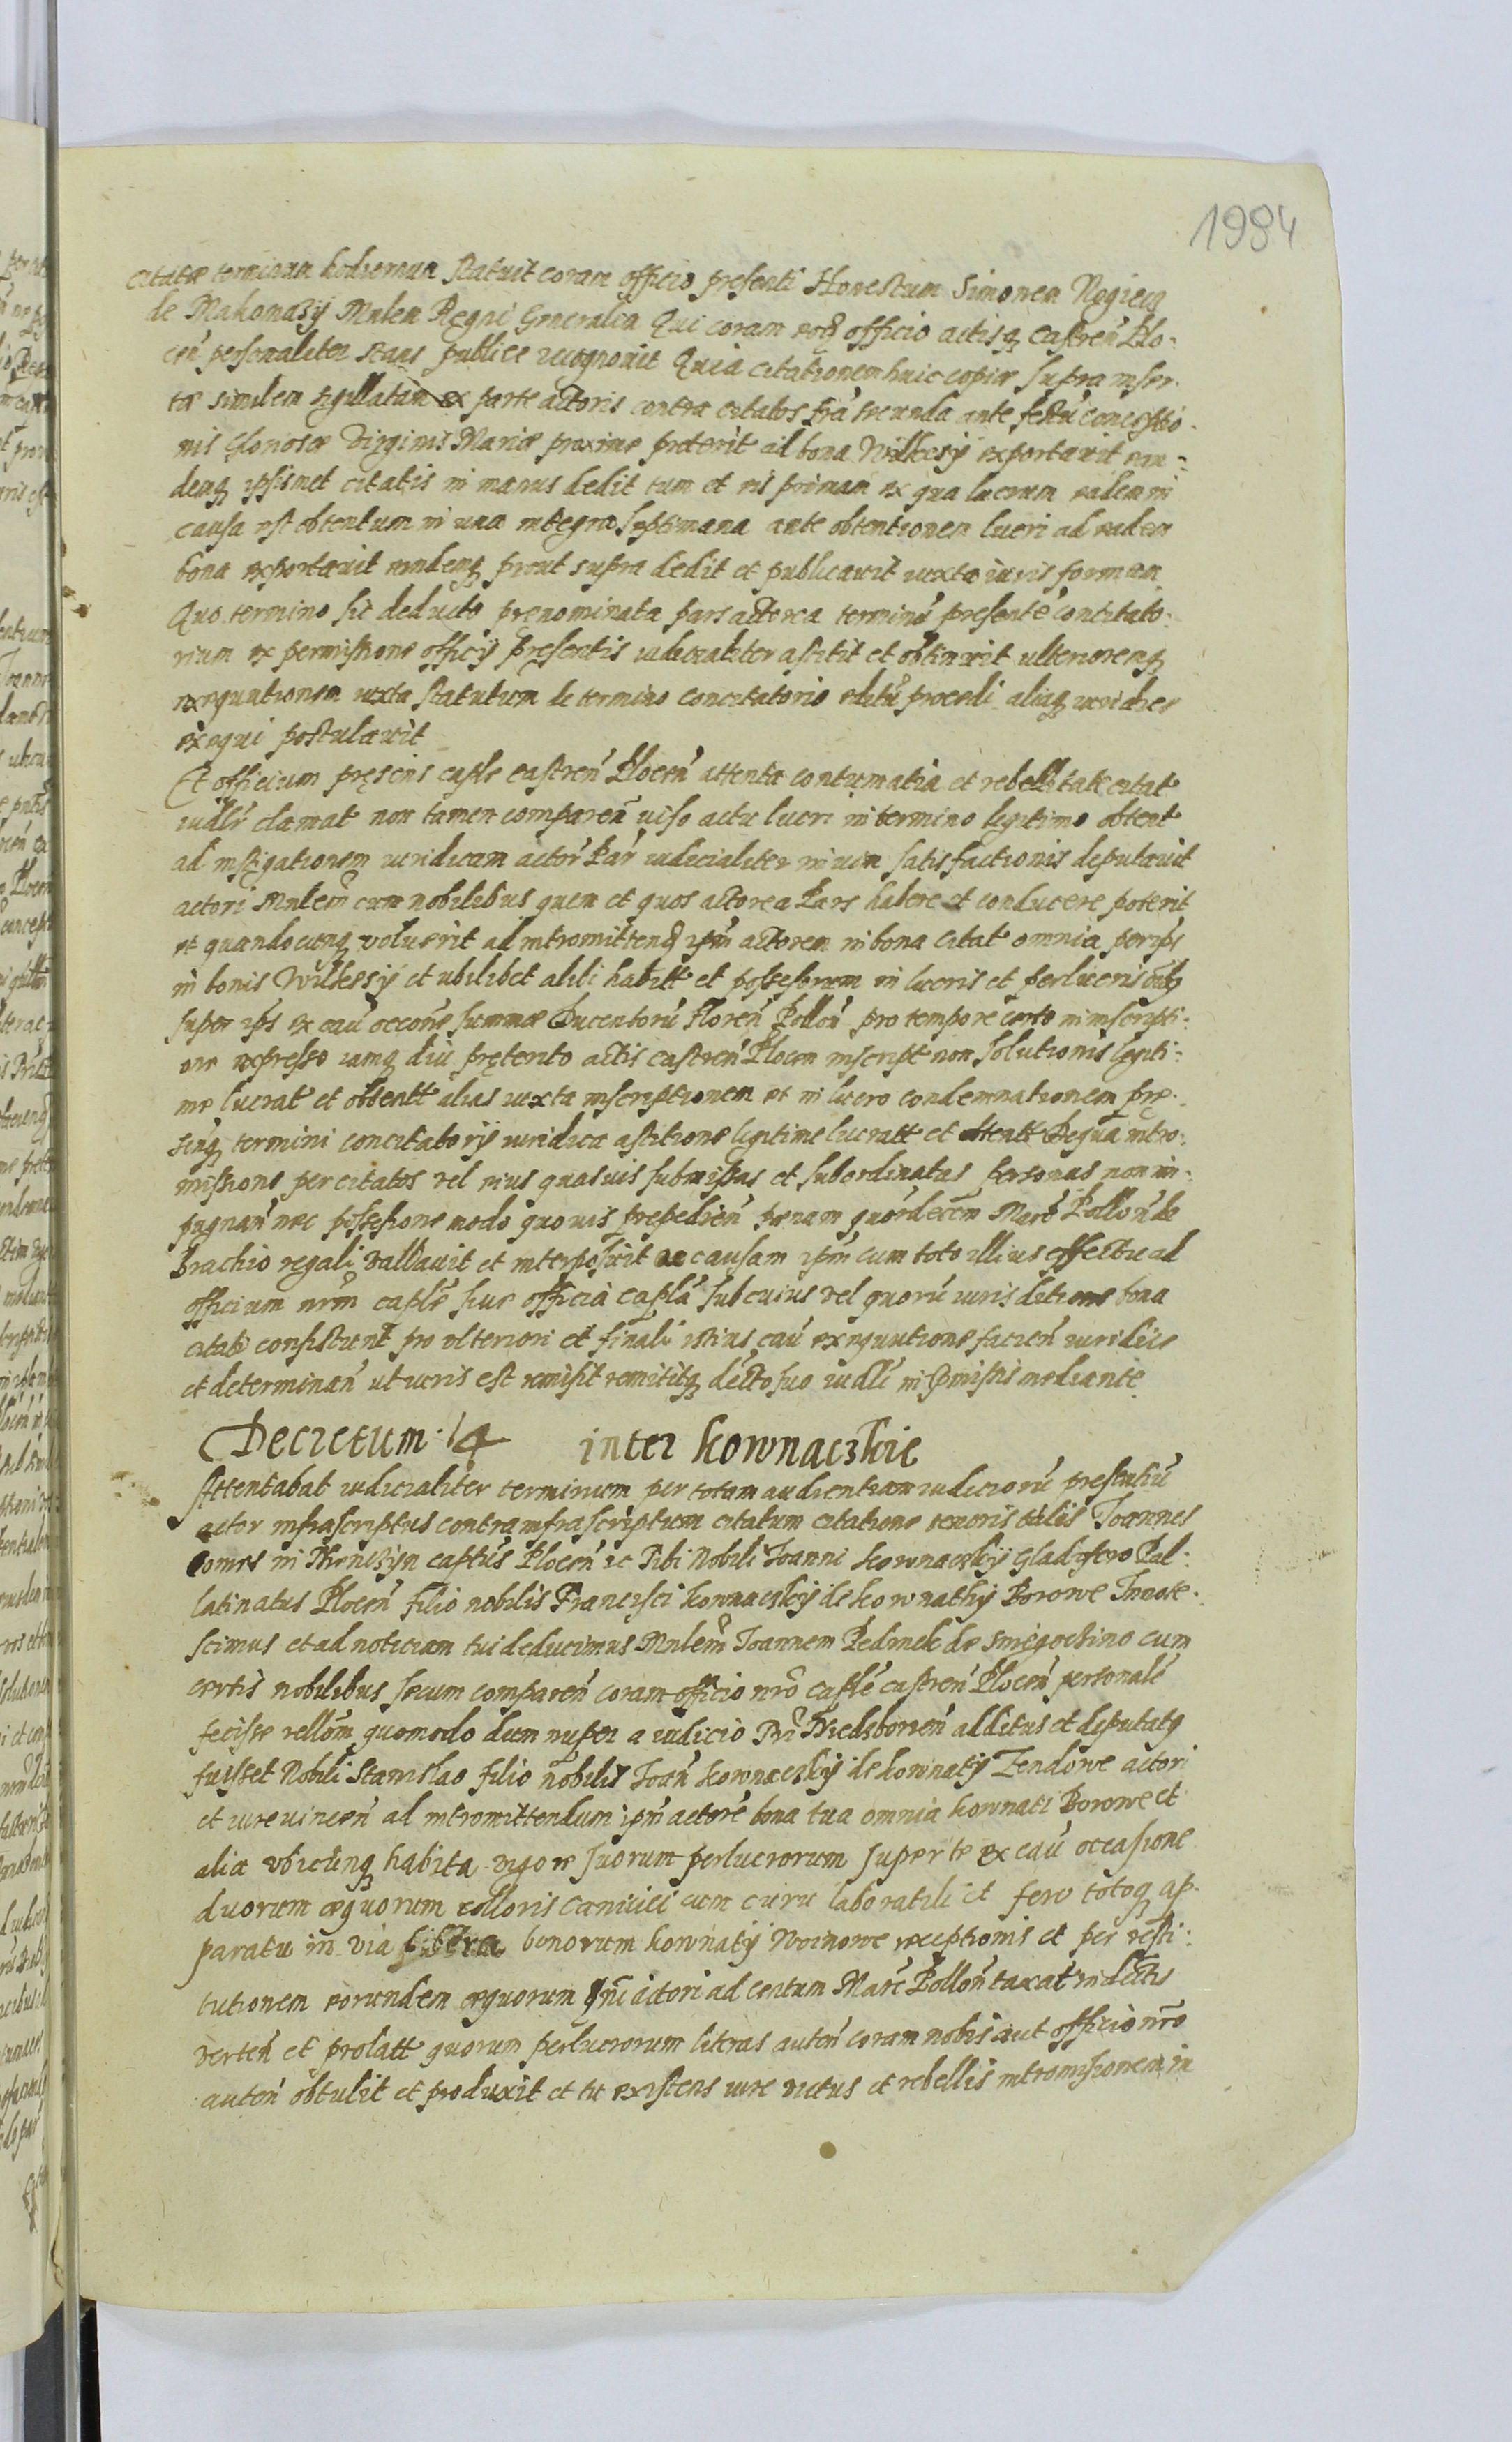 1984
citatæ terminum hodiernum statuit coram officio presenti Honestum Simonem Nogiecz
de Makomazÿ Mnlem Regni Generalem Qui coram eodem officio actisq castreñ Plo:
ceñ personaliter stans publice recognovit Quia citationem huic copiæ supra inser:
tæ similem sigillatam ex parte actoris contra citatos fria secunda ante festũ conceptio:
nis Gloriosæ Virginis Mariæ proxime preterit ad bona Wilkesÿ exportavit ean:
demq ipsismet citatis in manus dedit tum et eis primam ex qua lucrum eadem in
causa est obtentum in una integra septimana ante obtentionem lucri ad eadem
bona exportavit eandemq prout supra dedit et publicavit iuxta iuris formam
Quo termino sic deducto prenominata pars actorea terminũ presentẽ concitato:
rium ex permissione officÿ presentis iudicialiter astitit et obtinuit ulterioremq
exequutionem iuxta statutum de termino concitatorio editũ procedi aliaq iuridice
exequi postulavit
Et officium pręsens capłe castreñ Ploceñ attenta contumatia et rebellitate citat
iudłr clamat non tamen compareñ uiso actu lucri in termino legitimo obtent
ad instigationem iuridicam actoř Pař iudicialiter in uim satisfactionis deputavit
actori Mnlem cum nobilibus quem et quos actorea Pars habere et conducere poterit
et quandocunq voluerit ad intromittend ipm actorem in bona citat omnia per ips
in bonis Wilkessÿ et ubilibet alibi habitt et possessorum in lucris et perlucris
super ips ex caũ occõne summæ Ducentorũ Floreñ Polloñ pro tempore certo in inscripti:
one expresso iamq diu pręterito actis castreñ Plocen inscript non solutionis legiti:
me lucrat et obtentt alias iuxta inscriptionem et in lucro condemnationem pre:
sensq termini concitatorÿ iuridica astitione legitime lucratt et obtentt De qua intro:
missione per citatos vel eius quasuis submissas et subordinatas personas non im:
pugnañ nec possessione modo quouis prepedieñ pœnam quordecem Marc Polloñ de
brachio regali vallavit et interposuit ac causam ipm cum toto illius effectu ad
officium nrm capłe siue officia capła sub cuius vel quorũ iuris ditione bona
citati consistunt pro ulteriori et finali istius caũ exequutione facieñ iuridice
et determinañ ut iuris est remisit remititq decto suo iudłi in pmissis mediante
Decretum 14 inter Kownaczkie
Attentabat iudicialiter terminum per totam audientiam iudiciorũ presentiũ
actor infrascriptus contra infrascriptum citatum citatione tenoris talis Joannes
Comes in Thenczÿn capłus Ploceñ ec Tibi Nobili Joanni Kownaczkÿ Gladifero Pal:
latinatus Ploceñ filio nobilis Francisci Kownaczkÿ de Kownathÿ Borowe Innote:
scimus et ad noticiam tui deducimus Mnlem Joannem Pedinek de Smiegoctino cum
certis nobilibus secum compareñ coram officio nrõ capłe castreñ Ploceñ personałr
fecisse rellõm quomodo dum nuper a iudicio Tri Niedzborieñ additus et deputatq
fuisset Nobili Stanislao filio nobilis Joañ Kownaczkÿ de Kownatÿ Zendowe actori
et iure uinceñ ad intromittendum ipm actorẽ bona tua omnia Kownati Borowe et
alia ubicunq habita vigore suorum perlucrorum super te ex caũ occasione
duorum æquorum colloris canicei cum curu laboratili et fero totoq ap:
paratu in via libera bonorum Kownatÿ Woinowe receptionis et per resti:
tutionem eorundem æquorum actori ad centum Marc Polloñ taxat in dectis
verteñ et prolatt quorum perlucrorum literas auteñ coram nobis aut officio nrõ
auteñ obtulit et produxit et tu existens iure victus et rebellis intromissionem in